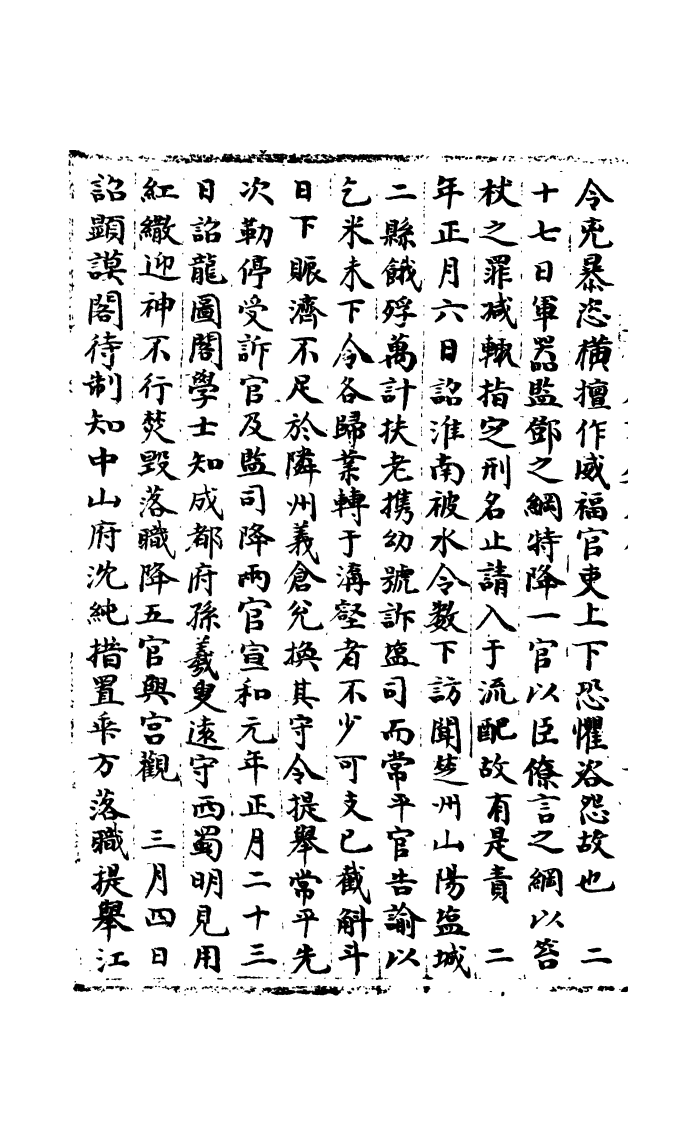 令兇暴恣橫擅作威福官吏上下恐懼咨怨故也　二
十七日軍器監鄧之綱特降一官以臣僚言之綱以笞
杖之罪减輒指定刑名止請入于流配故有是責　二
年正月六日詔淮南被水令数下訪聞楚州山陽盐城
二縣餓殍萬計扶老攜幼號訴盐司而常平官告諭以
乞米未下令各歸業轉于溝壑者不少可支已截斛斗
日下賑濟不足於隣州義倉兌換其守令提舉常平先
次勒停受訴官及監司降兩官宣和元年正月二十三
日詔龍圖閣學士知成都府孫羲叟遠守西蜀明見用
紅繖迎神不行焚毀落職降五官與宮觀　三月四日
詔顯謨閣待制知中山府沈純措置乖方落職提舉江